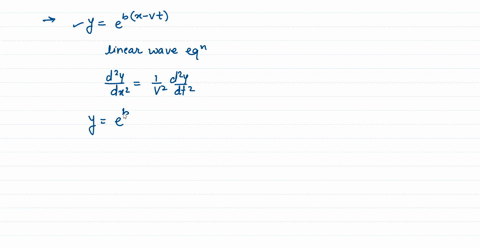 → ✓ y = e^{b(x-vt)}
linear wave eqⁿ
d²y/dx² = 1/v² d²y/dt²
y = e^b